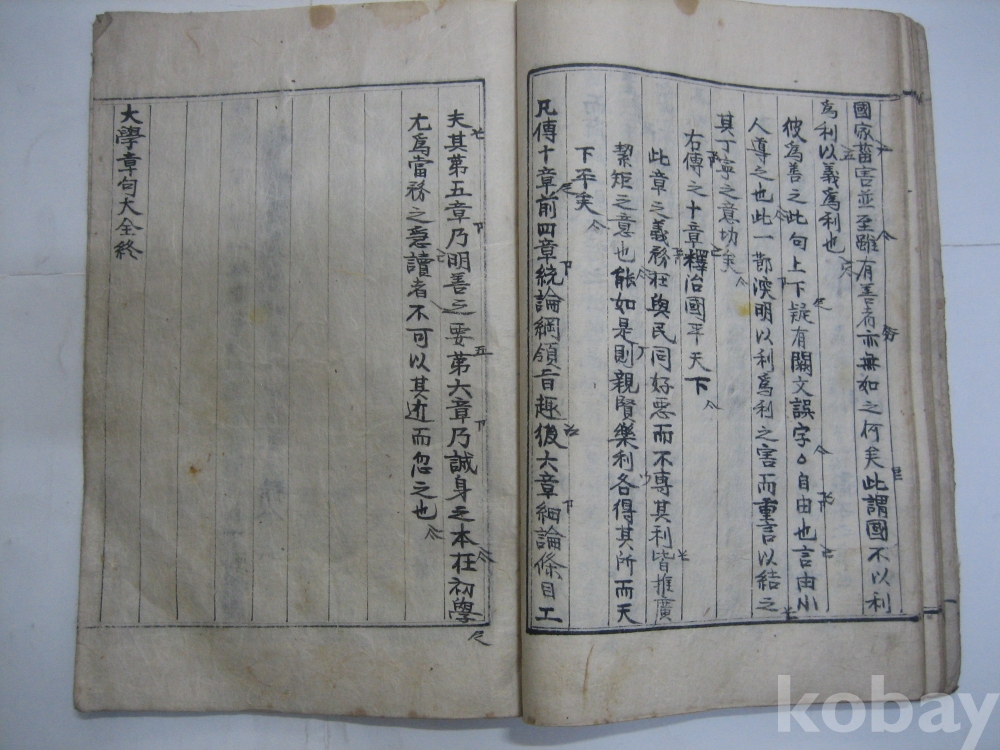 國家菑害並至雖有善者亦無如之何矣此謂國不以利
爲利以義爲利也
彼爲善之此句上下疑有闕文誤字○自由也言由小
人導之也此一節深明以利爲利之害而重言以結之
其丁寧之意切矣
右傳之十章釋治國平天下
此章之義務在與民同好惡而不專其利皆推廣
絜矩之意也能如是則親賢樂利各得其所而天
下平矣
凡傳十章前四章統論綱領旨趣後六章細論條目工
夫其第五章乃明善之要第六章乃誠身之本在初學
尤爲當務之急讀者不可以其近而忽之也
大學章句大全終
kobay